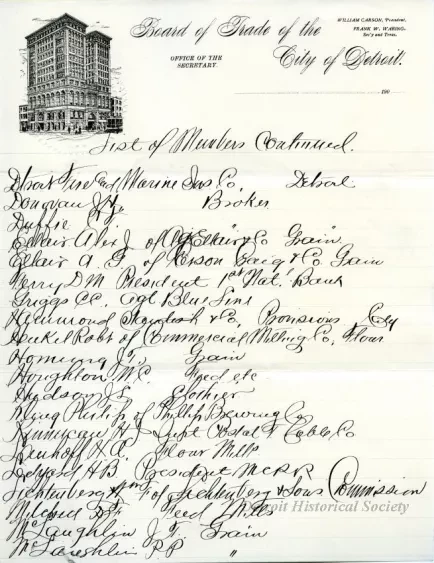 WILLIAM CARSON, President.
FRANK W. WARING, Sec'y and Treas.
Board of Trade of the
City of Detroit.
OFFICE OF THE
SECRETARY.
190
List of Members Continued.
Detroit Fire and Marine Ins Co. Detroit
Donovan Broker
Duffie
Ellair Alex J. of Ellair & Co Grain
Ellair A. of Carson Craig & Co Grain
Ferry D M President 1st Nat'l Bank
Griggs CC. Agt Blue Line
Hammond Standish & Co. Provisions City
Henkel Robt of Commercial Milling Co, Flour
Hornung J. Grain
Houghton M.C. Feed etc
Hudson J L Clothier
Kling Philip of Phillip Brewing Co
H J Supt Postal T Cable Co
Flour Mills
Ledyard H B President M C R R
Lichtenberg Wm F of Lichtenberg & Sons Commission
Mitchell Feed Mills
McLaughlin J. T. Grain
McLaughlin P P "
Detroit Historical Society